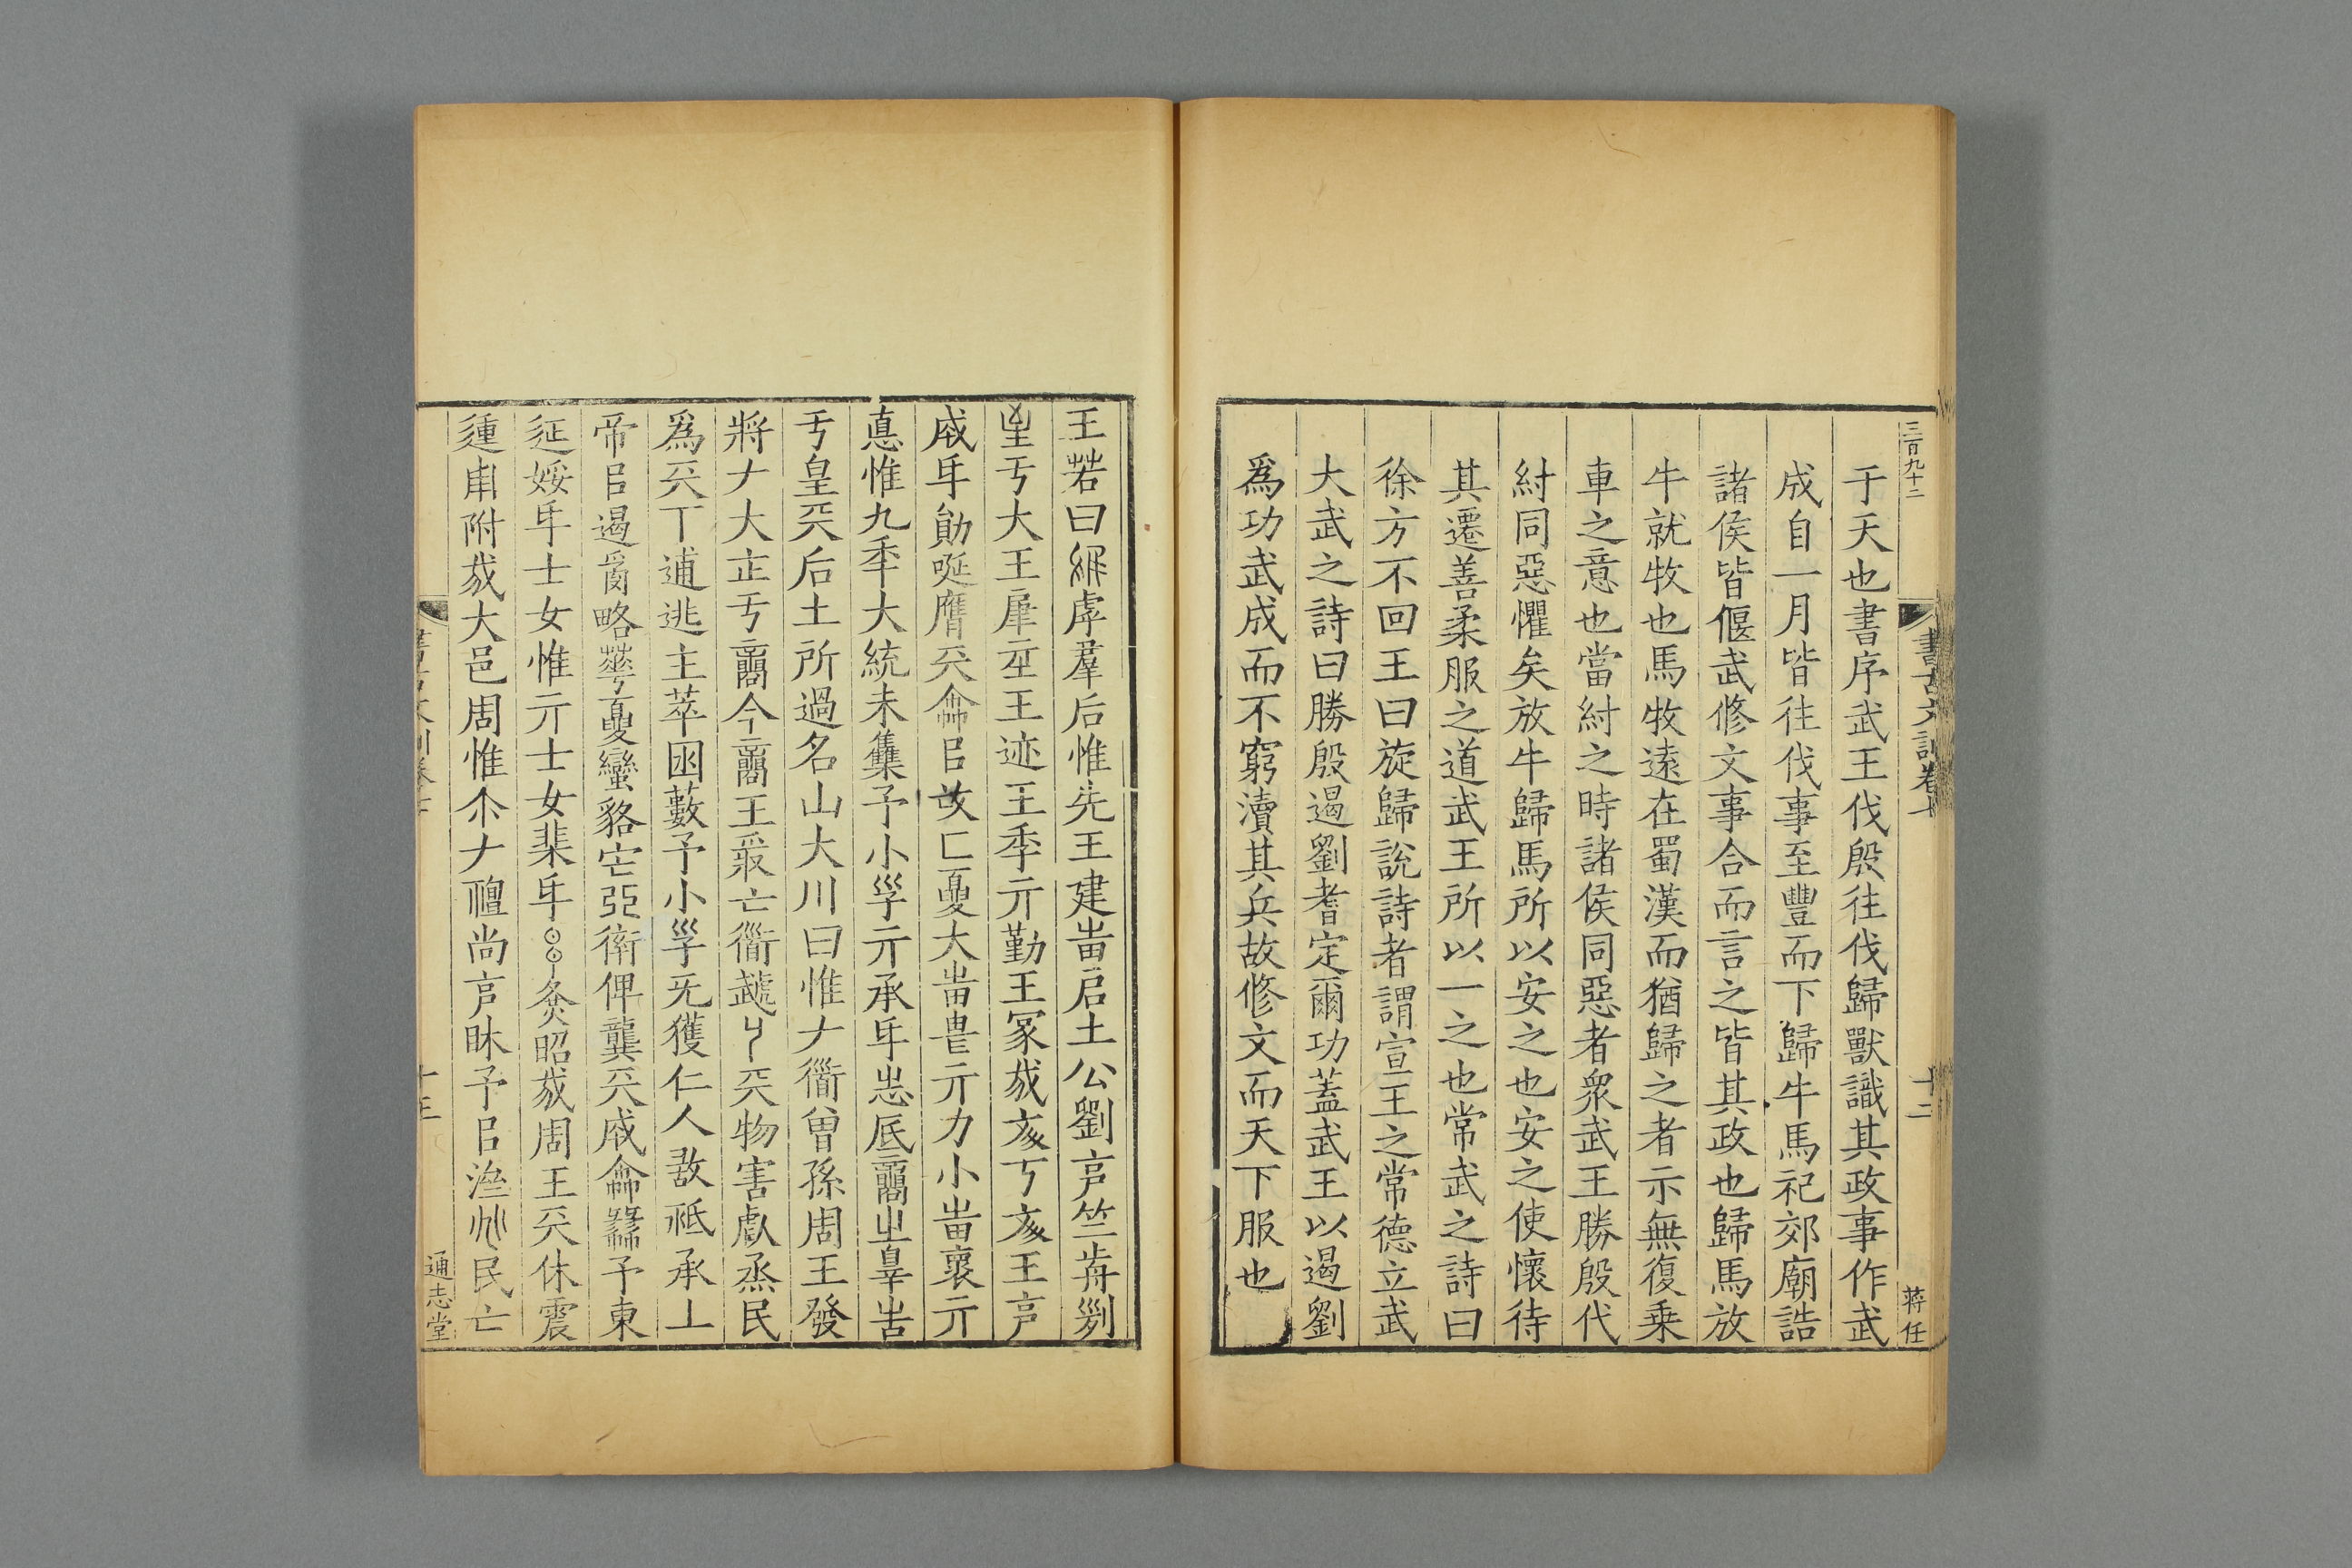 三百九十二
書古文訓卷十
十二
蔣任
于天也書序武王伐殷往伐歸獸識其政事作武
成自一月皆往伐事至豐而下歸牛馬祀郊廟誥
諸侯皆偃武修文事合而言之皆其政也歸馬放
牛就牧也馬牧遠在蜀漢而猶歸之者示無復乗
車之意也當紂之時諸侯同惡者衆武王勝殷代
紂同惡懼矣放牛歸馬所以安之也安之使懷待
其遷善柔服之道武王所以一之也常武之詩曰
徐方不回王曰旋歸說詩者謂宣王之常德立武
大武之詩曰勝殷遏劉耆定爾功蓋武王以遏劉
爲功武成而不窮瀆其兵故修文而天下服也
王若曰繃虖羣后惟先王建啚启土公劉亯竺歬剡
亐大王犀王迹王季亓勤王冡㦲亥丂亥王亯
成𠂆勛唌膺兲龠㠯匚夓大嵓畏亓力小嵓褱亓
悳惟九秊大統未集予小孚亓承𠂆志底啇㞢辠告
亐皇兲后土所過名山大川曰惟𠂇衜曾孫周王發
將𠂇大正亐啇今啇王亡衜兲物害烝民
爲兲丅逋逃主萃囦藪予小孚旡獲仁人敢祗承丄
帝㠯遏略蕚夓蠻貉亞衛俾龔兲成龠予東
延婑𠂆士女惟亓士女棐𠂆昭㦲周王兲休震
運𤰃附㦲大邑周惟尒𠂇禮尚亯眜予㠯民亡
書古文訓卷十
十三
通志堂